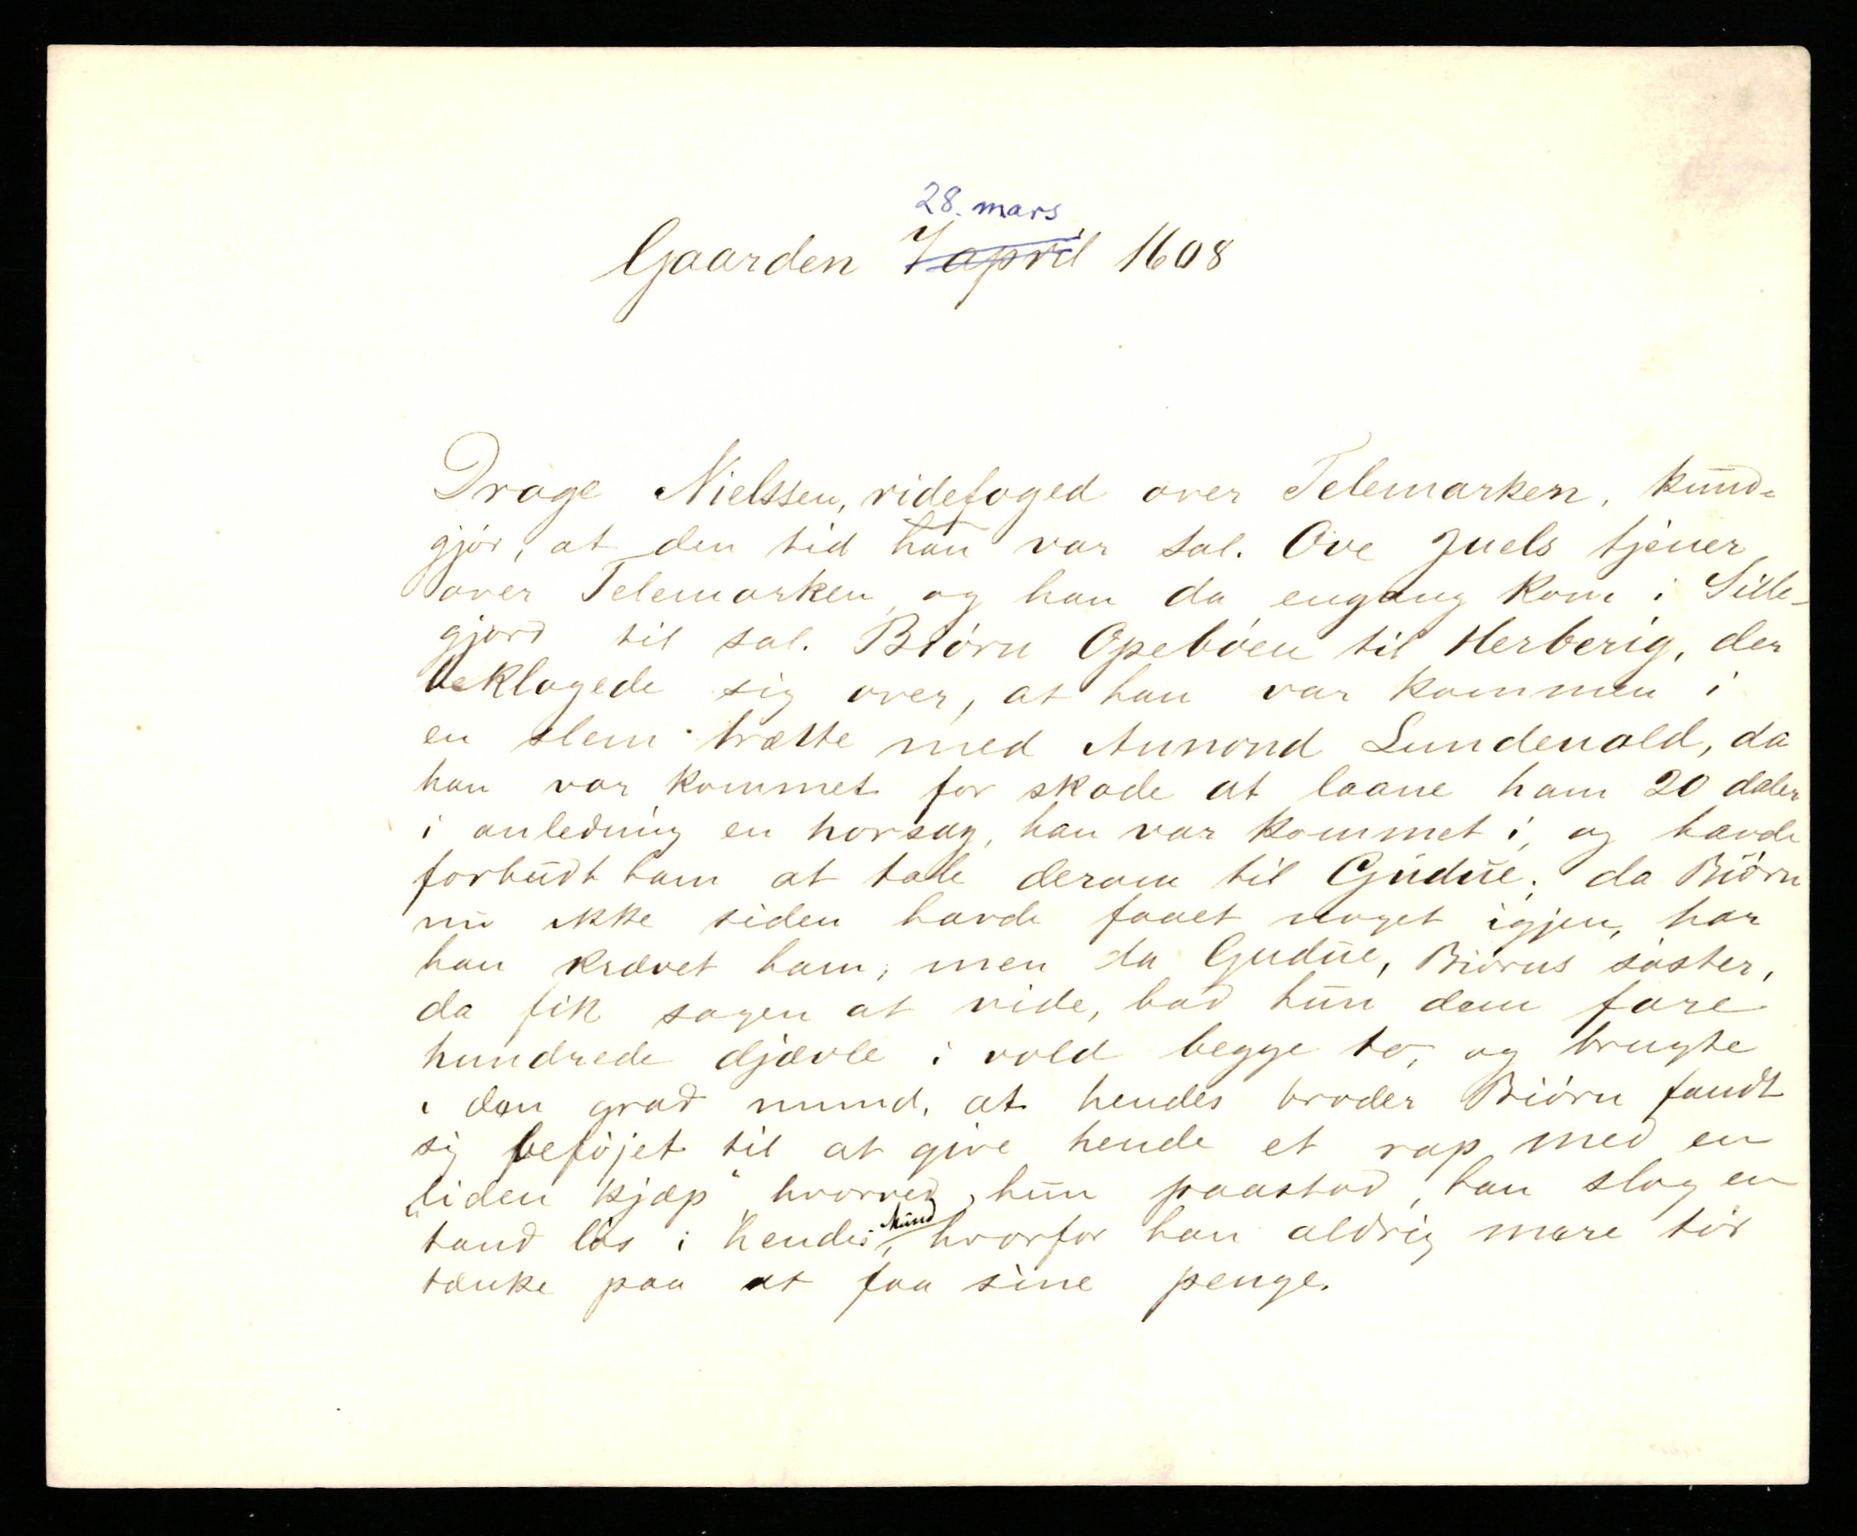 28. mars
Gaarden 7 april 1608
Drage Nielssen, ridefoged over Telemarken, kund-
gjør, at den tid han var sal. Ove Juels tjener
over Telemarken, og han da engang kom i Sille-
gjord til sal. Biørn Opebøen til Herberig, der
beklagede sig over, at han var kommen i
en slem trætte med Aunond Lundevald, da
han var kommet for skade at laane ham 20 daler
i anledning en horsag, han var kommet i, og havde
forbudt ham at tale derom til Gudue; da Biørn
nu ikke siden havde faaet noget igjen, har
han krævet ham, men da Gudue, Biørns søster,
da fik sagen at vide, bad hun dem fare
hundrede djævle i vold begge to, og brugte
i den grad mund, at hendes broder Biørn fandt
sig beføjet til at give hende et rap med en
"liden kjæp" hvorved, hun paastod, han slog en
tand løs i hendes Mund, hvorfor han aldrig mere tør
tænke paa at faa sine penge.